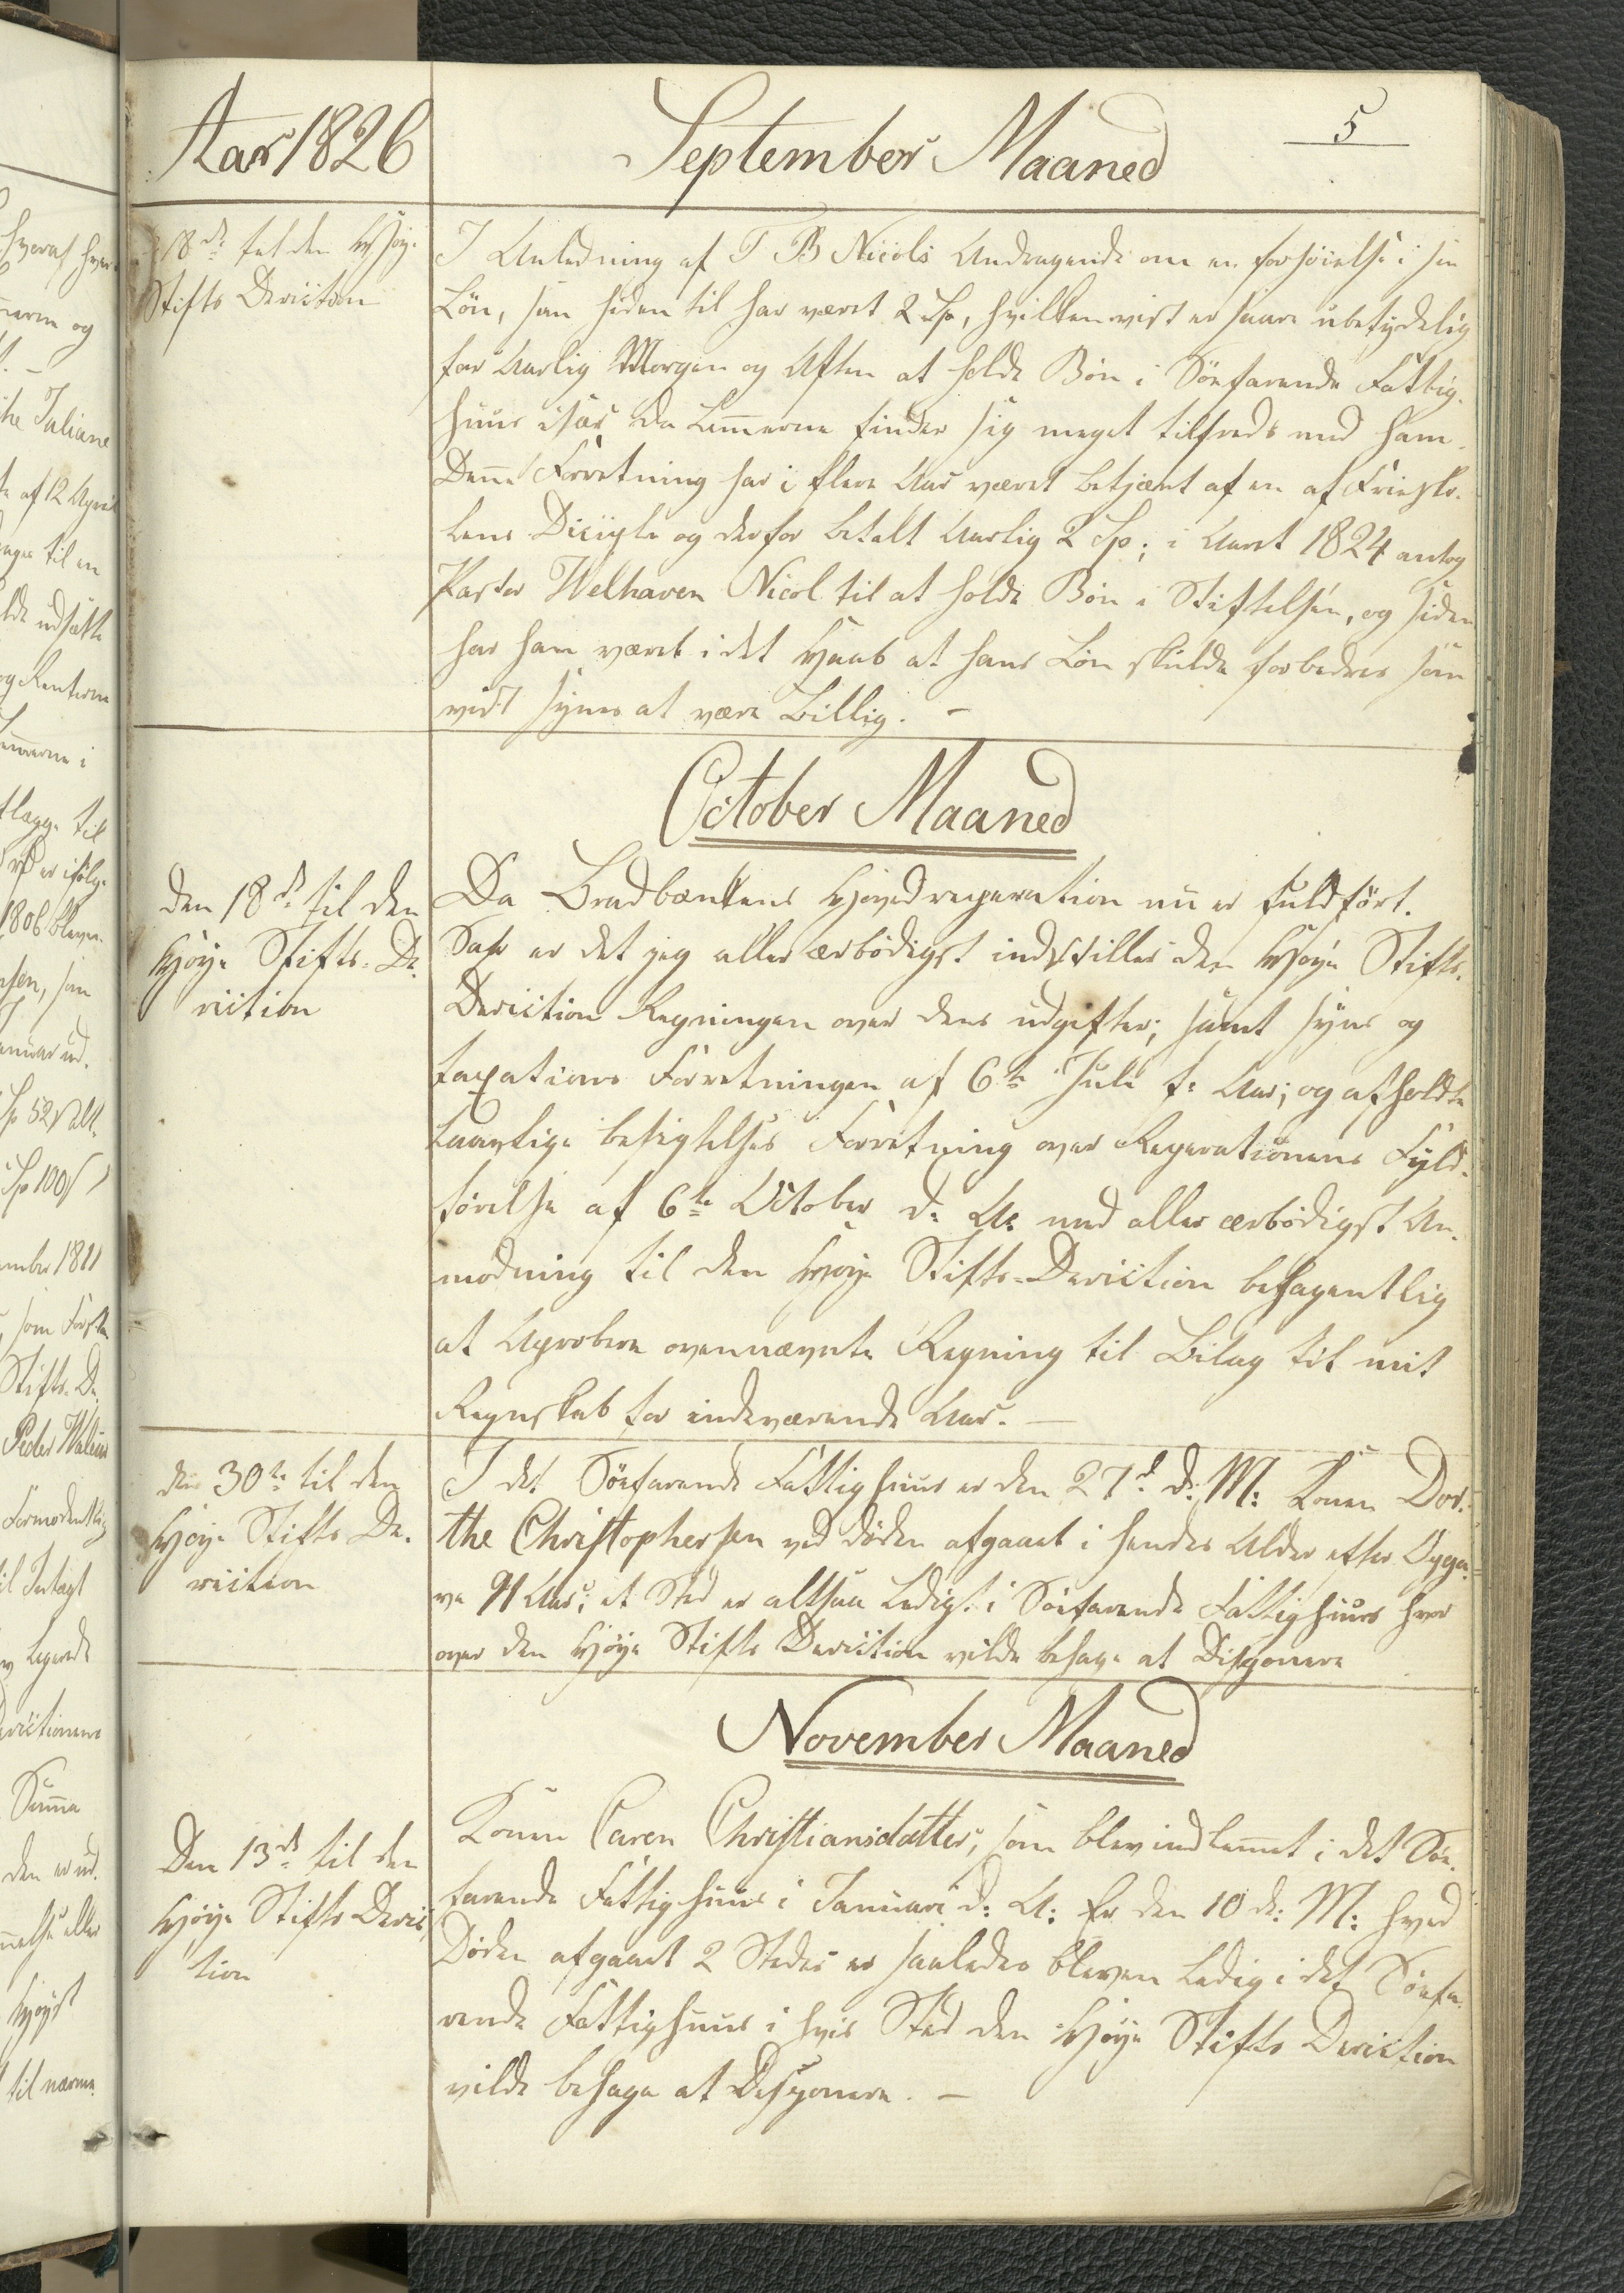 Aar 1826
September Maaned
5
18de til den Høye
Stifts Dericton
I Anledning af T B Nicols Andragende om en forhøielse i sin
Løn, som hiden til har været 2 Sp, hvilken vist er saare ubetydelig
for Aarlig Morgen og Aften at holde Bøn i Søefarende Fattig-
huus især da Lemmerne finder sig meget tilfreds med ham.
Denne Forretning har i flere Aar været betjænt af en af Friesko-
lens Diciple og derfor betalt Aarlig 2 Sp; i Aaret 1824 antog
Pastor Welhaven Nicol til at holde Bøn i Stiftelsen, og siden
har han været i det Haab at hans Løn skulde forbedres som
vist synes at være Billig. –
October Maaned
den 18de til den
Høye Stifts-De-
riction
Da Bradbænkens Hovedreparation nu er fuldført.
Saa er det jeg aller ærbødigst indstiller den Høye Stifts-
Deriction Regningen over dens udgifter; samt syns og
taxations Forretningen af 6te Juli f: Aar; og afholdte
Lovlige besigtelses Forretning over Reparationens Fyld-
førelse af 6te October d: A: med aller ærbødigst An-
modning til den Høye Stifts-Deriction behagentlig
at Aprobere ovennævnte Regning til Bilag til mit
Regnskab for indeværende Aar. –
den 30te til den
Høye Stifts De-
riction
I det Søefarende Fattighuus er den 27d d: M: Konen Dor-
the Christophersen ved døden afgaaet i hendes Alder efter Opga-
ve 91 Aar; et Sted er altsaa Ledigt i Søefarende Fattighuus hvor
over den Høye Stifts Deriction vilde behage at Disponere
November Maaned
Den 13de til den
Høye Stifts Deric-
tion
Konen Caren Christiansdatter, som blev indlemmet i det Søe-
farende Fattighuus i Januari d: A: Er den 10 d: M: hved
Døden afgaaet 2 Steder er saaledes bleven Ledig i det Søefa-
rende Fattighuus i hvis Sted den Høye Stifts Deriction
vilde behage at Desponere. –